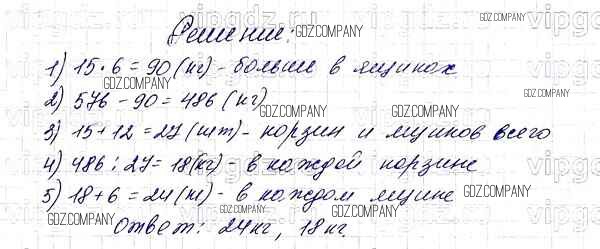 Решение:
1) 15·6=90(кг)-больше в ящиках
2) 576-90=486(кг)
3) 15+12=27(шт)-корзин и ящиков всего
4) 486:27=18(кг)-в каждой корзине
5) 18+6=24(кг)-в каждом ящике
Ответ: 24кг, 18кг.
GDZ.COMPANY
GDZ.COMPANY
GDZ.COMPANY
GDZ.COMPANY
GDZ.COMPANY
GDZ.COMPANY
GDZ.COMPANY
GDZ.COMPANY
GDZ.COMPANY
GDZ.COMPANY
GDZ.COMPANY